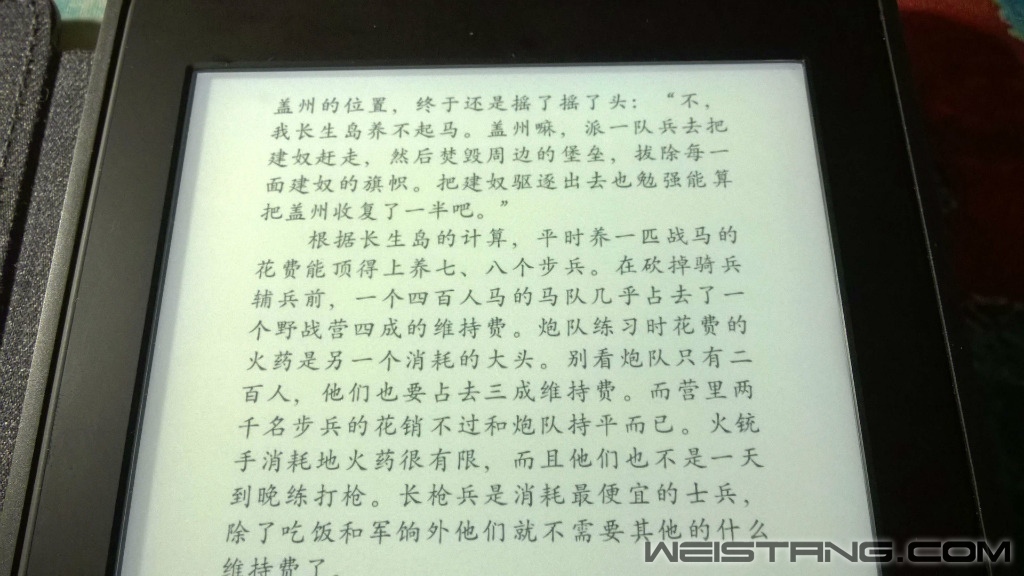 盖州的位置，终于还是摇了摇了头：“不，
我长生岛养不起马。盖州嘛，派一队兵去把
建奴赶走，然后焚毁周边的堡垒，拔除每一
面建奴的旗帜。把建奴驱逐出去也勉强能算
把盖州收复了一半吧。”
根据长生岛的计算，平时养一匹战马的
花费能顶得上养七、八个步兵。在砍掉骑兵
辅兵前，一个四百人马的马队几乎占去了一
个野战营四成的维持费。炮队练习时花费的
火药是另一个消耗的大头。别看炮队只有二
百人，他们也要占去三成维持费。而营里两
千名步兵的花销不过和炮队持平而已。火铳
手消耗地火药很有限，而且他们也不是一天
到晚练打枪。长枪兵是消耗最便宜的士兵，
除了吃饭和军饷外他们就不需要其他的什么
维持费了。
WEISTANG.COM